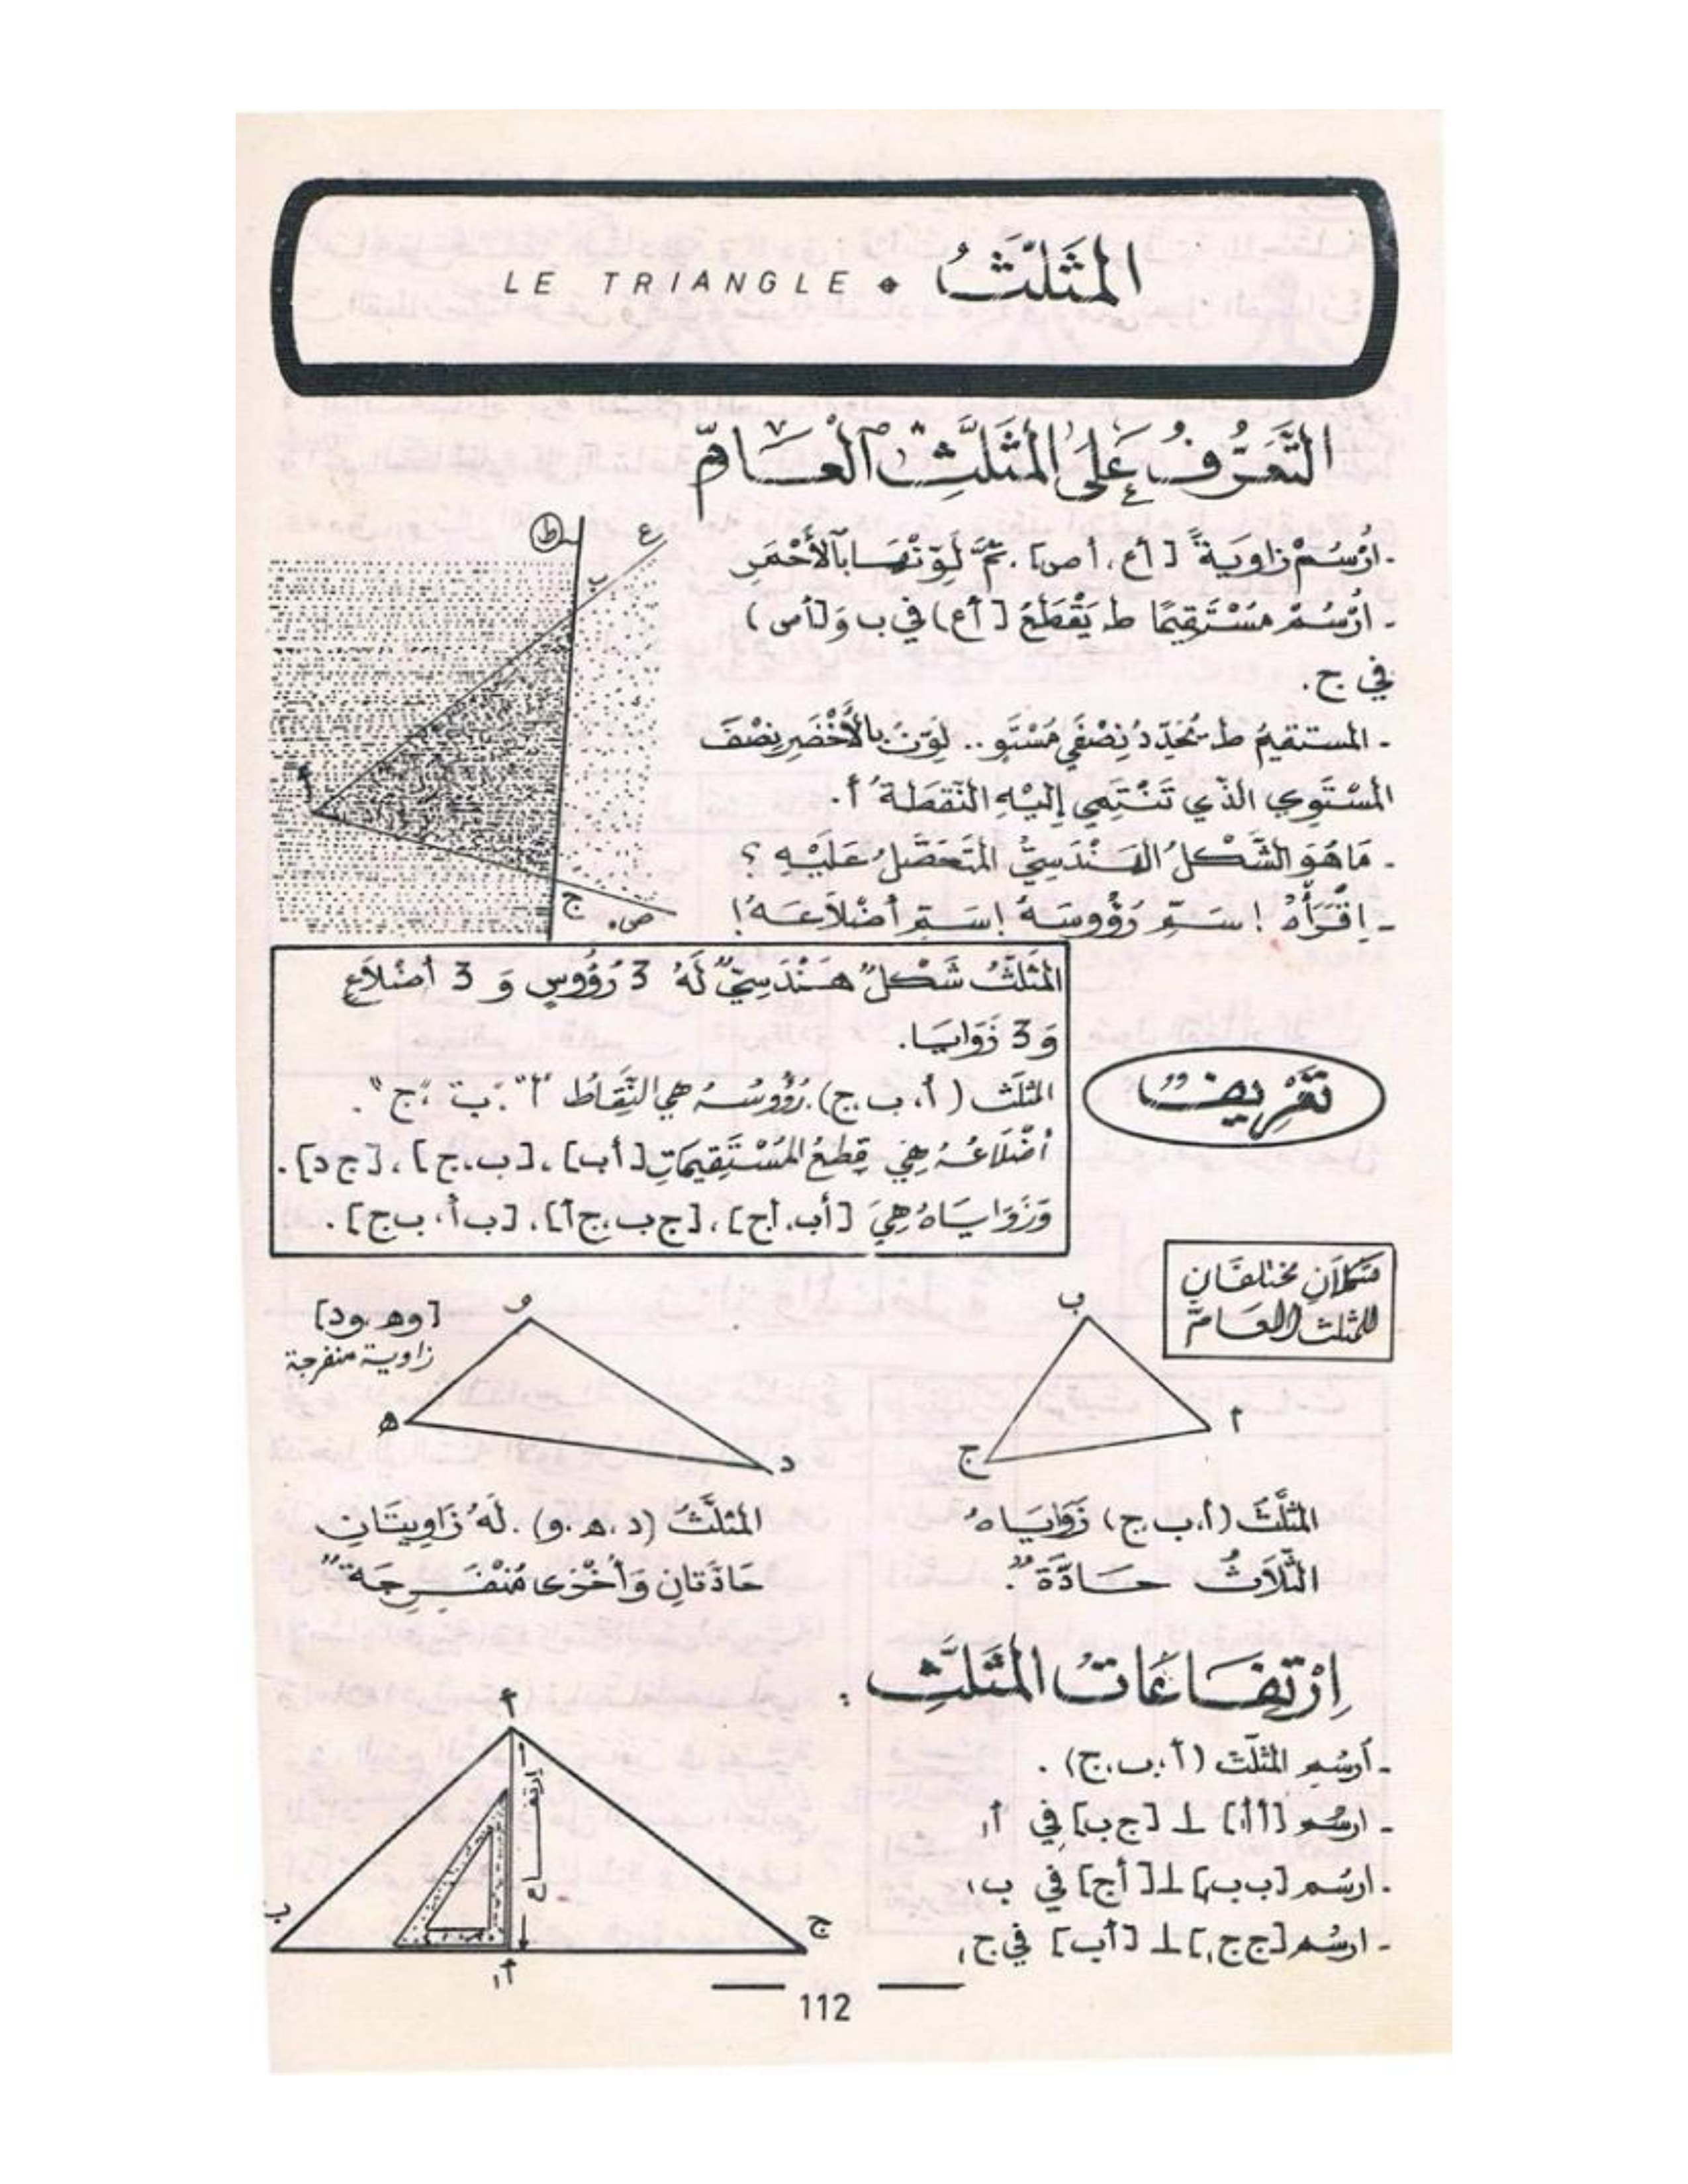 المثَلَّثُ ⌖ LE TRIANGLE
التَّعَرُّفُ عَلَى المُثَلَّثِ الْعَامِّ
ط
ع
ب
أ
ج
ص
- ارْسُمْ زاوِيَةً [أع، أص]. ثمَّ لَوِّنْهَا بِالأَحْمَرِ
- ارْسُمْ مُسْتَقِيمًا ط يَقْطَعُ [أع) في ب وَ [أص)
في ج.
- المستقيمُ ط يُحَدِّدُ نِصْفَيْ مُسْتَوٍ.. لَوِّنْ بالأَخْضَرِ نِصْفَ
المُسْتَوِي الذّي تَنْتَمِي إِلَيْهِ النّقطَةُ أ.
- مَا هُوَ الشَّكْلُ الهَنْدَسِيُّ المُتَحَصَّلُ عَلَيْهِ ؟
- اِقْرَأْهُ ! سَمِّ رُؤُوسَهُ ! سَمِّ أَضْلاَعَهُ !
المُثَلَّثُ شَكْلٌ هَنْدَسِيٌّ لَهُ 3 رُؤُوسٍ وَ 3 أضْلاَعٍ
وَ 3 زَوَايَا.
المثلّث (أ، ب، ج) رُؤُوسُهُ هي النِّقَاطُ "أ"، "ب"، "ج".
أضْلَاعُهُ هِيَ قِطَعُ المُسْتَقِيمَاتِ [أب]، [ب،ج]، [ج د].
وَزَوَايَاهُ هِيَ [أب، أج]، [ج ب، ج أ]، [ب أ، ب ج].
تَعْرِيفٌ
شكلاَنِ مختلفَانِ
للمثلث العَامّ
[وه، ود]
زاوية منفرجة
و
ه
د
ب
أ
ج
المثلّث (أ،ب،ج) زَوَايَاهُ
الثّلاَثُ حَادَّةٌ.
المثلَّثُ (د،ه،و) لَهُ زَاوِيتَانِ
حَادّتانِ وَأُخْرَى مُنْفَرِجَةٌ
اِرْتِفَاعَاتُ المثَلَّثِ :
- أرسُمِ المثلّث (أ،ب،ج).
- ارسُمِ [أأ₁] ⊥ [ج ب] في أ₁
- ارسُم [ب ب₁] ⊥ [أج] في ب₁
- ارسُم [ج ج₁] ⊥ [أب] في ج₁
أ
ارتفــاع
ب
ج
أ₁
112